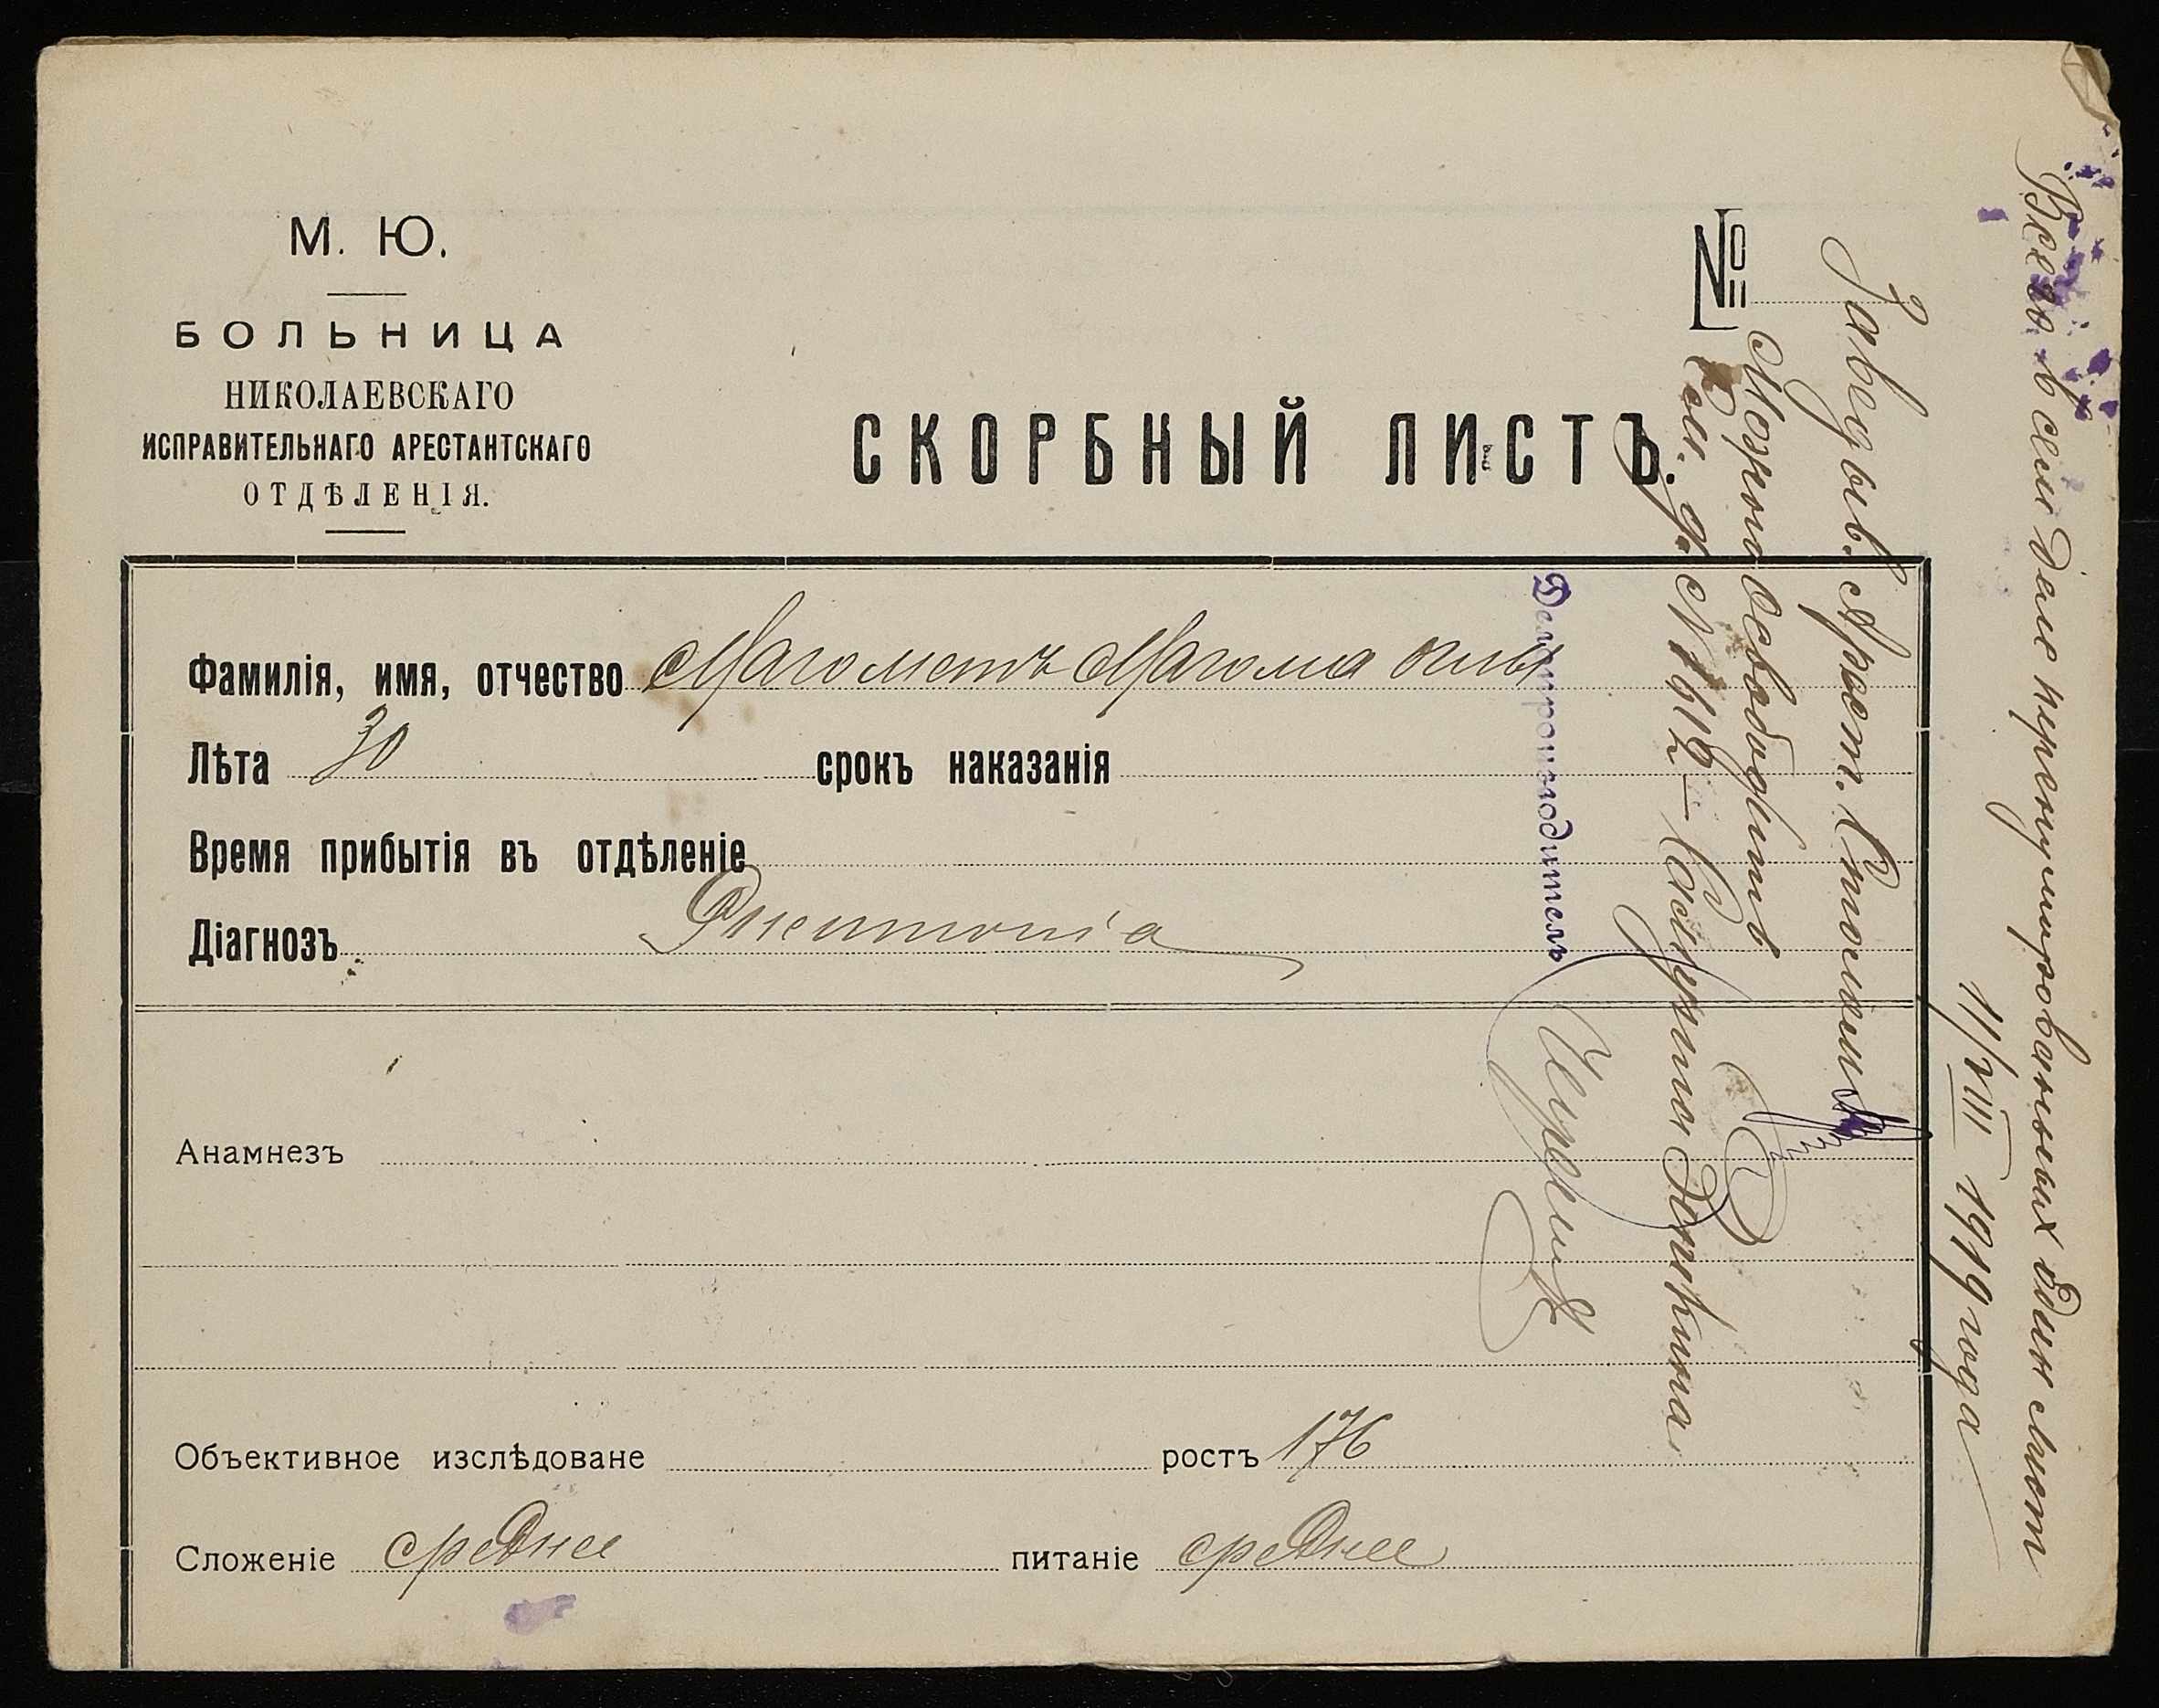 М. Ю.
БОЛЬНИЦА
НИКОЛАЕВСКАГО
ИСПРАВИТЕЛЬНАГО АРЕСТАНТСКАГО
ОТДѢЛЕНІЯ.
№
СКОРБНЫЙ ЛИСТЪ.
Фамилія, имя, отчество Магометъ Магома оглы
Лѣта 30 срокъ наказанія
Время прибытія въ отдѣленіе
Діагнозъ Pneumonia
Анамнезъ
Объективное изслѣдоване ростъ 176
Сложеніе среднее питаніе среднее
Всего в сем деле пренумированных один лист
11/VIII 1919 года
Заведыв. Арест. Столом
Можно освободить
д. №
Делопроизводитель